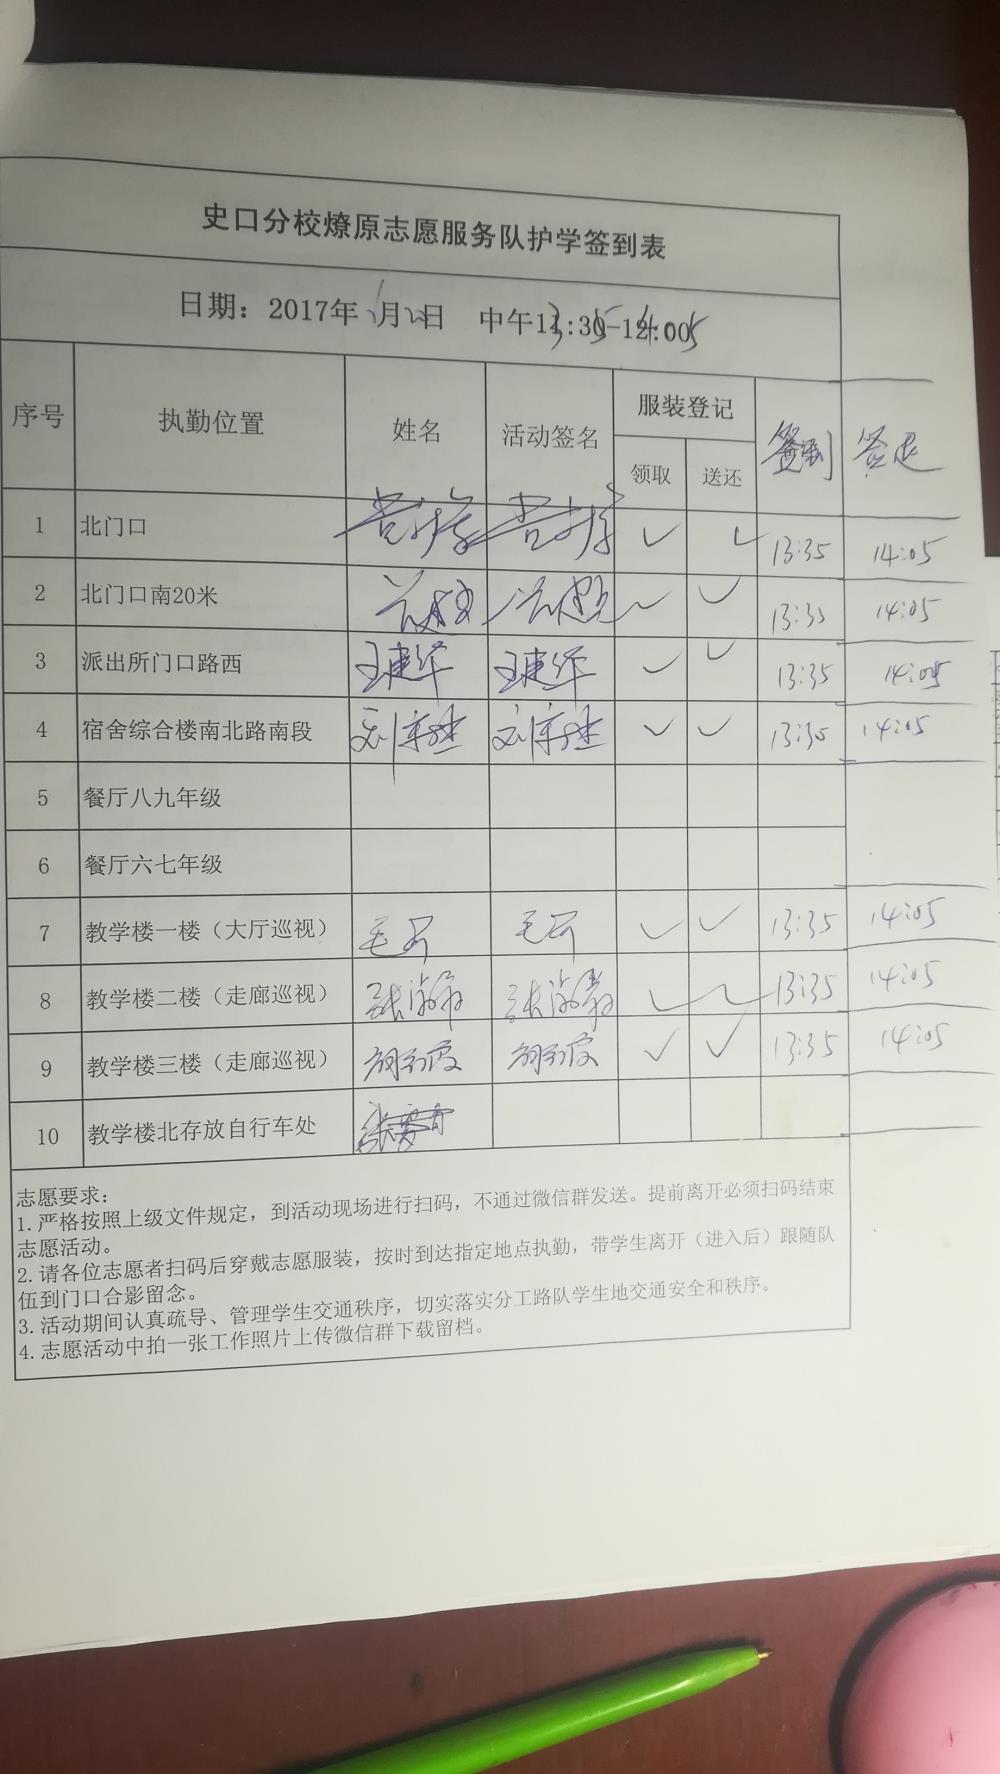 史口分校燎原志愿服务队护学签到表
日期：2017年 月 日 中午
序号 执勤位置 姓名 活动签名 服装登记 签到 签退
领取 送还
1 北门口 ✓ ✓ 13:35 14:05
2 北门口南20米 ✓ ✓ 13:35 14:05
3 派出所门口路西 王建华 王建华 ✓ ✓ 13:35 14:05
4 宿舍综合楼南北路南段 ✓ ✓ 13:35 14:05
5 餐厅八九年级
6 餐厅六七年级
7 教学楼一楼（大厅巡视） ✓ ✓ 13:35 14:05
8 教学楼二楼（走廊巡视） ✓ ✓ 13:35 14:05
9 教学楼三楼（走廊巡视） ✓ ✓ 13:35 14:05
10 教学楼北存放自行车处
志愿要求：
1.严格按照上级文件规定，到活动现场进行扫码，不通过微信群发送。提前离开必须扫码结束
志愿活动。
2.请各位志愿者扫码后穿戴志愿服装，按时到达指定地点执勤，带学生离开（进入后）跟随队
伍到门口合影留念。
3.活动期间认真疏导、管理学生交通秩序，切实落实分工路队学生地交通安全和秩序。
4.志愿活动中拍一张工作照片上传微信群下载留档。